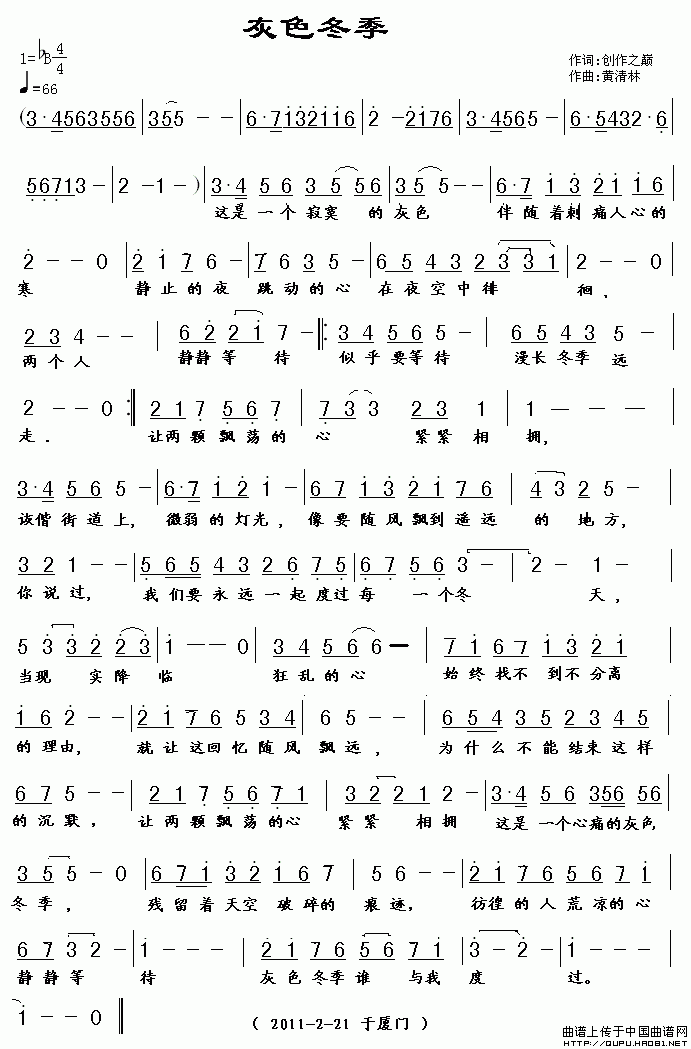 灰色冬季
1=bB 4/4
作词:创作之巅
作曲:黄清林
♩=66
(3·4563556|355--|6·71321 16|2-2176|3·4565-|6·5432·6
56713-|2-1-)|3·4 56 35 56|35 5--|6·7 13 21 16|
这是一个寂寞 的灰色 伴随着刺痛人心的
2--0|21 76-|76 35-|65 43 23 31|2--0|
寒 静止的夜 跳动的心 在夜空中徘 徊,
234--|62 21 7-:34 565-|65 43 5-|
两个人 静静等 待 似乎要等待 漫长冬季 远
2--0:|217 567|733 23 1|1---|
走. 让两颗飘荡的 心 紧紧相 拥,
3·4 56 5-|6·7 12 1-|67 13 21 76|43 25-|
诙偕街道上, 微弱的灯光, 像要随风飘到遥远 的 地方,
32 1--|565 43 26 75|67 56 3-|2-1-|
你说过, 我们要永远一起度过每 一个冬 天,
53 32 2 23|1--0|34 566-|71 67 13 121|
当现 实降临 狂乱的心 始终找不 到不分离
16 2--|21 76 53 4|65--|654 35 23 45|
的理由, 就让这回忆随风 飘远, 为什么不能结束这样
67 5--|21 75 67 1|32 21 2-|3·4 56 356 56|
的沉默, 让两颗飘荡的心 紧紧 相拥 这是一个心痛的灰色,
35 5-0|671 32 167|56--|21 76 56 71|
冬季, 残留着天空破碎的 痕迹, 彷徨的人荒凉的心
67 3 2-|1---|21 76 56 71|3-2-|1---|
静静等 待 灰色冬季谁 与我 度 过.
1--0|
( 2011-2-21 于厦门 )
曲谱上传于中国曲谱网
http://QUPU.HAO81.NET